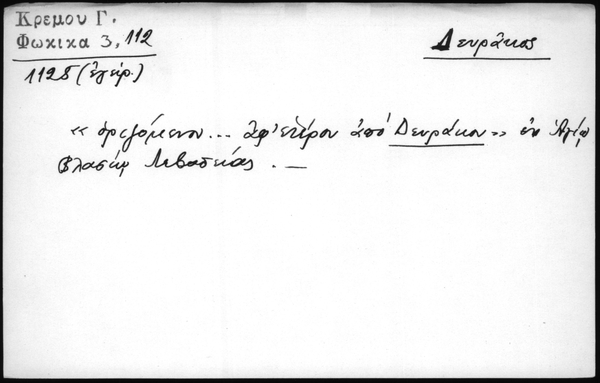 Κρεμου Γ.
Φωκικα 3, 112
Δευράκος
1125 (ἔγγρ.)
«ὁριζόμενον... ἀφ' ἑτέρου ἀπὸ Δευράκου» ἐν Ἁγίῳ
Βλασίῳ Λεβαδείας. —